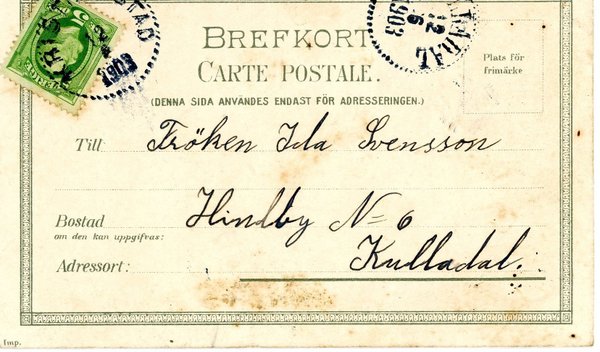 BREFKORT
CARTE POSTALE.
(DENNA SIDA ANVÄNDES ENDAST FÖR ADRESSERINGEN.)
Plats för
frimärke
12
6
1903
Till Fröken Ida Svensson
Bostad Hindby N= 6
om den kan uppgifvas:
Adressort: Kulladal.
Imp.